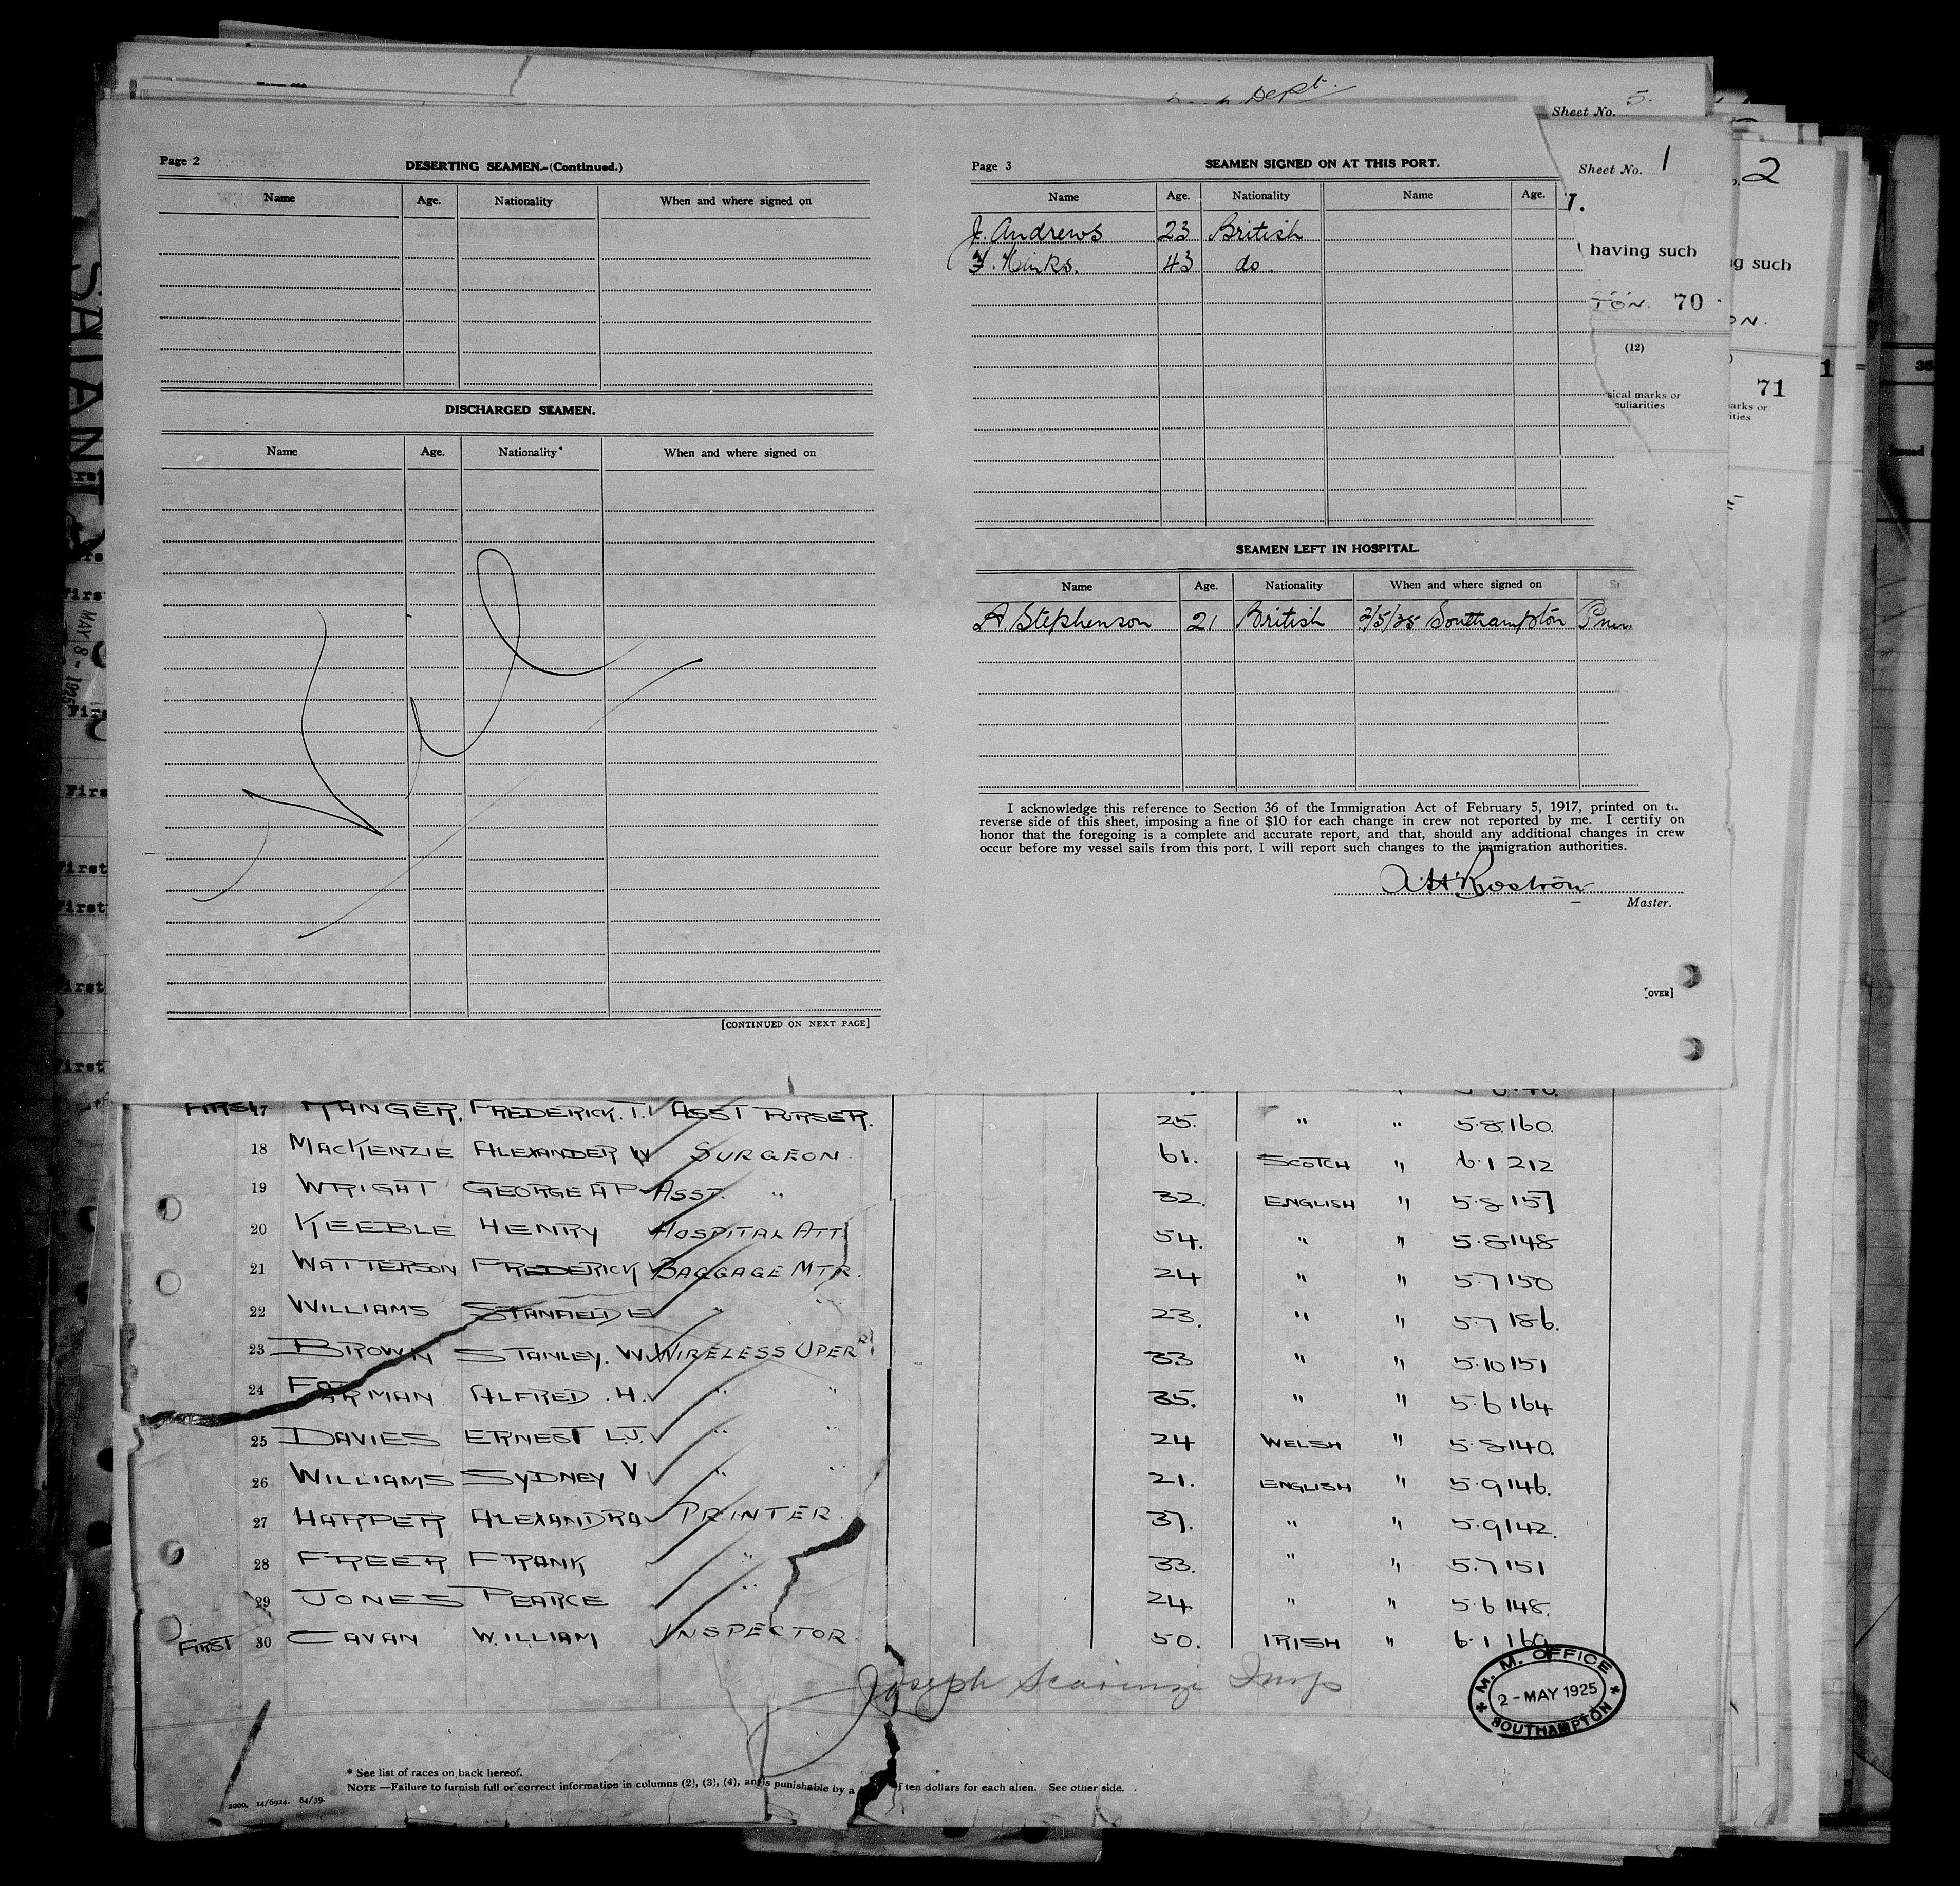 Dept.
Sheet No. 5.
Page 2
DESERTING SEAMEN.-(Continued.)
Name Age. Nationality When and where signed on
DISCHARGED SEAMEN.
Name Age. Nationality* When and where signed on
[CONTINUED ON NEXT PAGE]
Page 3
SEAMEN SIGNED ON AT THIS PORT.
Name Age. Nationality Name Age.
J. Andrews 23 British
F. Hinks. 43 do.
SEAMEN LEFT IN HOSPITAL.
Name Age. Nationality When and where signed on
A. Stephenson 21 British 2/5/25 Southampton
I acknowledge this reference to Section 36 of the Immigration Act of February 5, 1917, printed on
reverse side of this sheet, imposing a fine of $10 for each change in crew not reported by me. I certify on
honor that the foregoing is a complete and accurate report, and that, should any additional changes in crew
occur before my vessel sails from this port, I will report such changes to the immigration authorities.
A H Rostron
Master.
[OVER]
Sheet No. 1
having such
TON. 70
(12)
sical marks or
culiarities
2
such
ON.
71
1
MAY 8 - 1925
First
First
First
First
First
FIRST 17 RANGER, FREDERICK. T. ASST PURSER. 25. " " 5.8. 160.
18 MACKENZIE ALEXANDER W SURGEON 61. SCOTCH " 6.1 212
19 WRIGHT GEORGE A P ASST. " 32. ENGLISH " 5.8 157
20 KEEBLE HENRY HOSPITAL ATT 54. " " 5.8 148
21 WATTERSON FREDERICK BAGGAGE MTR. 24 " " 5.7 150
22 WILLIAMS STANFIELD E " " 23. " " 5.7 186.
23 BROWN STANLEY. W. WIRELESS OPER 33 " " 5.10 151
24 FARMAN ALFRED .H. " " 35. " " 5.6 164
25 DAVIES ERNEST L.J. " " 24 WELSH " 5.8 140.
26 WILLIAMS SYDNEY V " " 21. ENGLISH " 5.9 146.
27 HARPER ALEXANDRA PRINTER. 37. " " 5.9 142.
28 FREER FRANK " 33. " " 5.7 151
29 JONES PEARCE " 24 " " 5.6 148.
FIRST 30 CAVAN WILLIAM INSPECTOR. 50. IRISH " 6.1 169
Joseph Scarinzi Insp
M. M. OFFICE
2 - MAY 1925
SOUTHAMPTON
* See list of races on back hereof.
NOTE —Failure to furnish full or correct information in columns (2), (3), (4), an is punishable by a f ten dollars for each alien. See other side.
2000. 14/6924. 84/39.